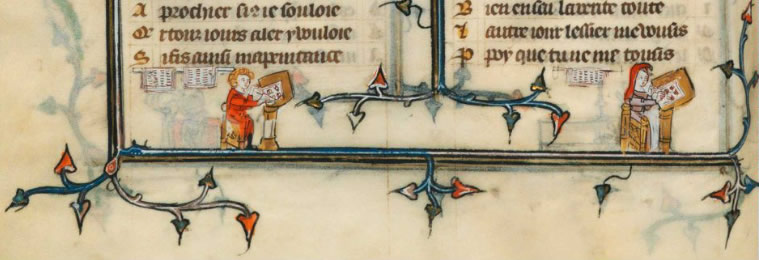 A prochier si ie souloie
Et touz iours aler y vouloie
S i fis ainsi mapenitance
B ien en sai la verite toute
L autre iour lessier me vousis
P poy que tu ne me tousis